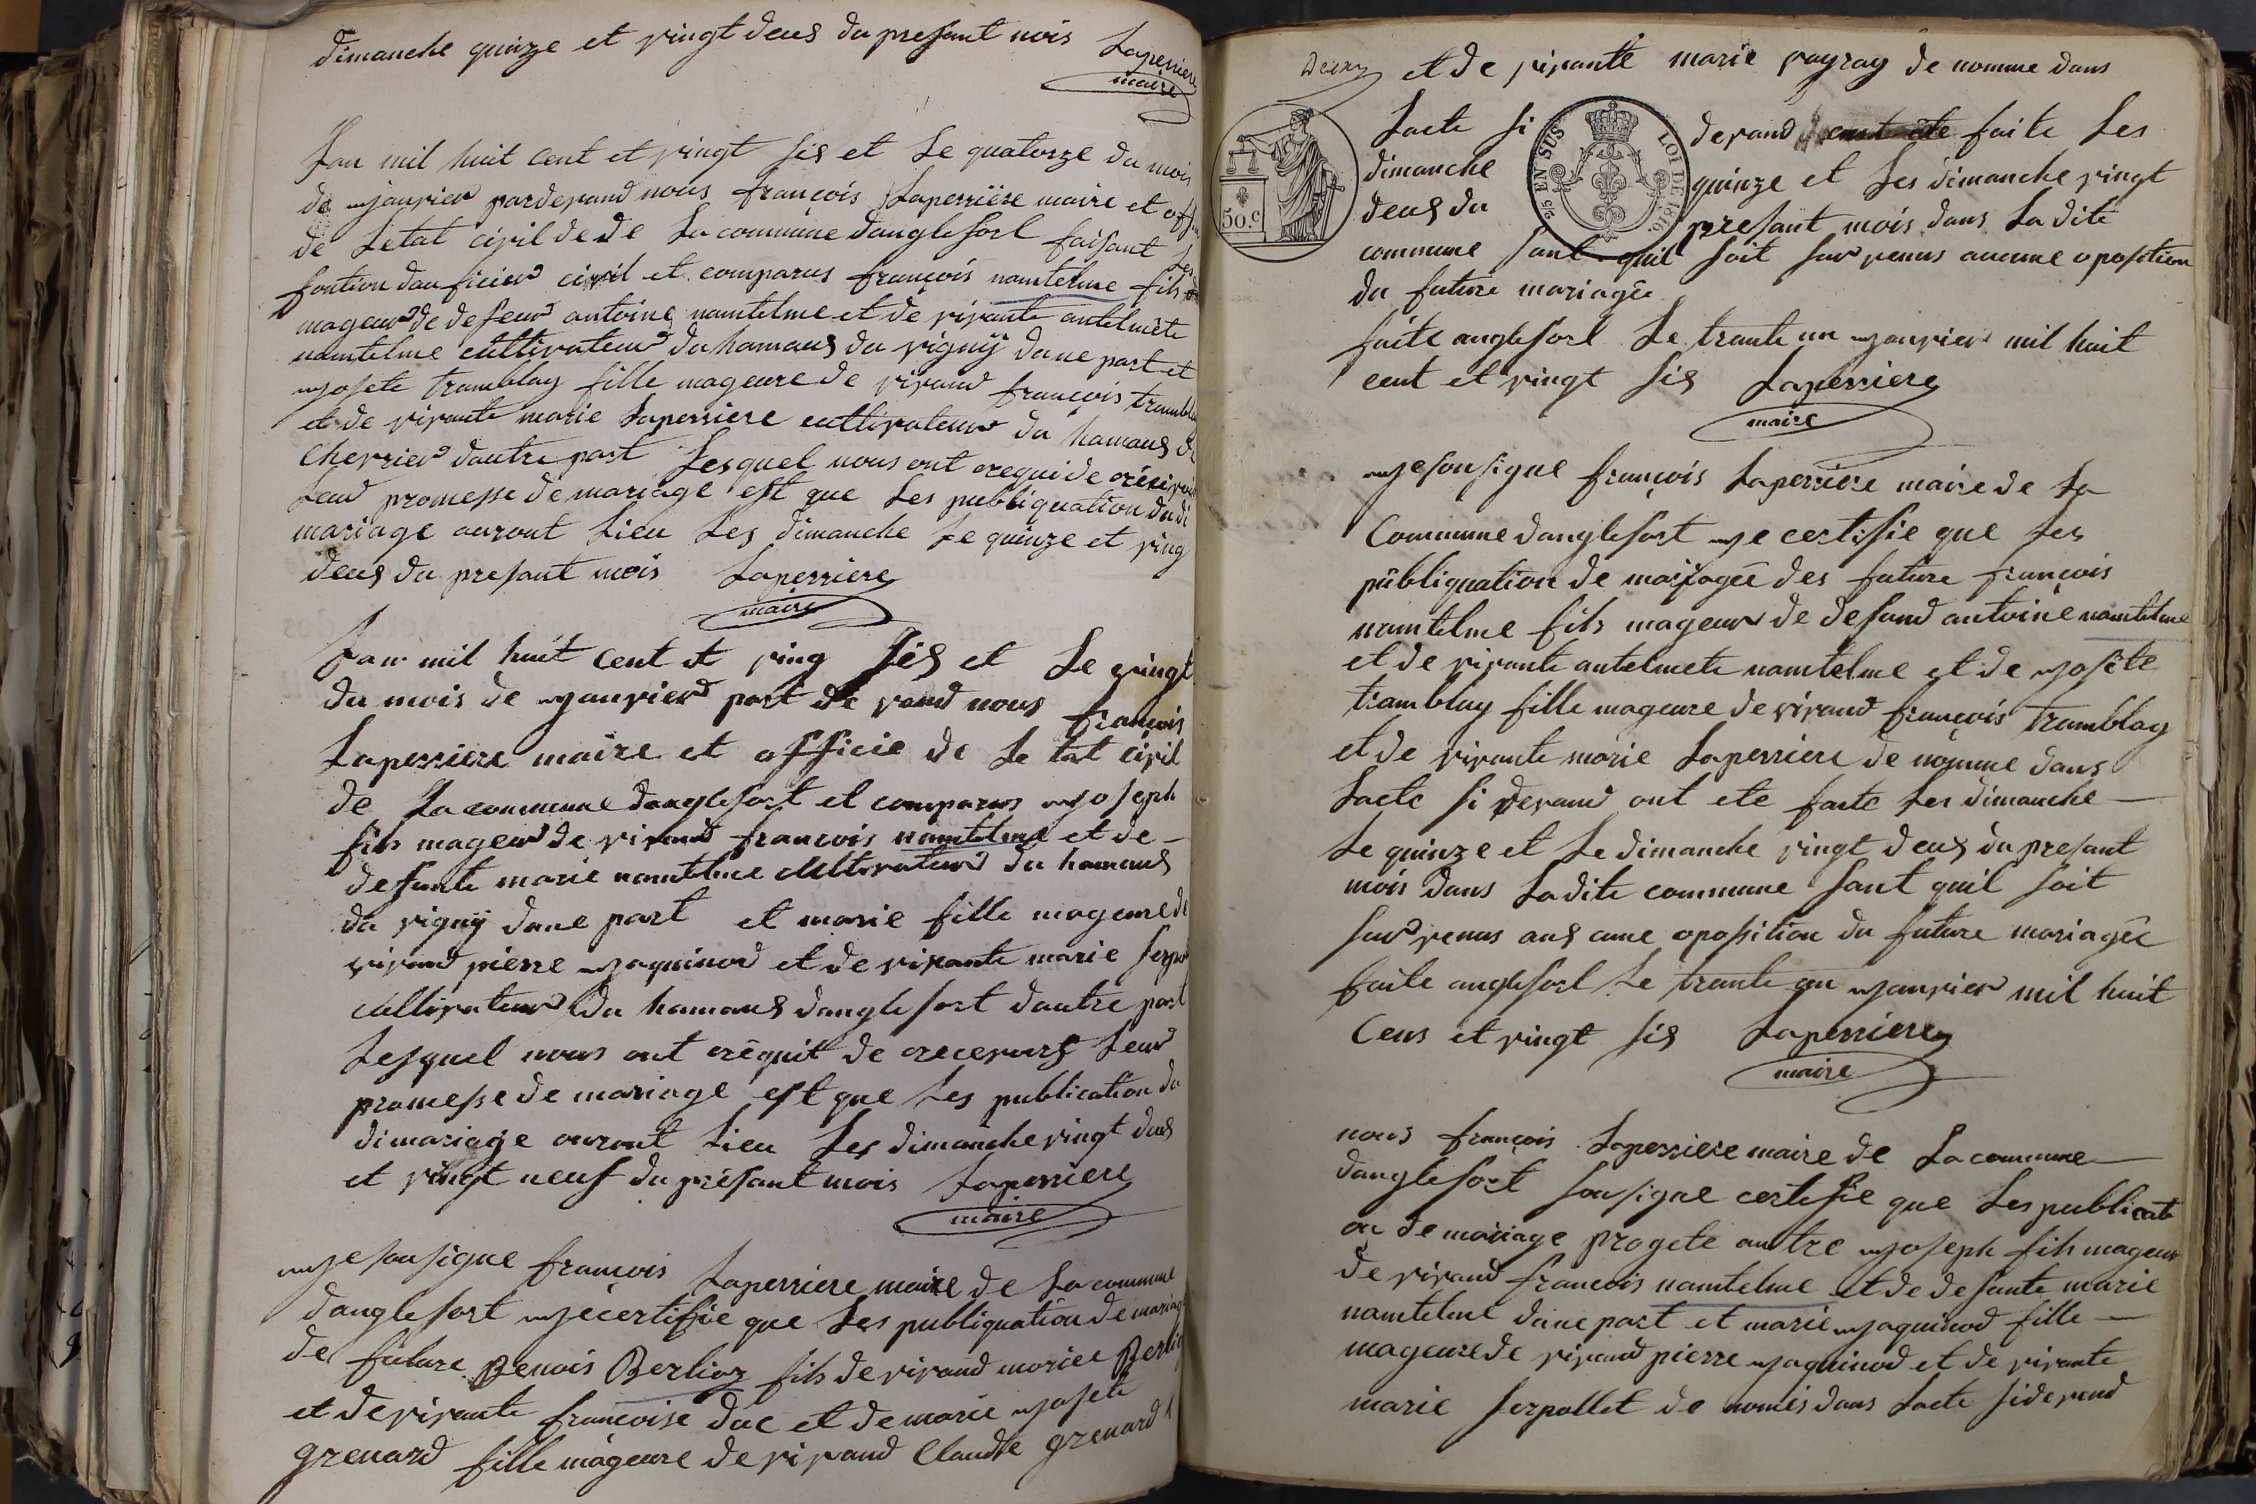 dimanche quinze et vingt deus du presant mois Laperriere
maire
Lan mil huit cent et vingt sis et Le quatorze du mois
de janvier pardevand nous françois Laperriére maire et offi
de Letat civil de de La commune danglefort faisant Les
fontion dauficier civil et comparus françois namtelme fils
mageur de defeur antoine namtelme et de vivante antelmete
namtelme cultivateur du hamaus du vignÿ dune part et
josete tramblay fille mageure de vivand françois trambla
et de vivante marie Laperriere cultivateur du hamaus de
Chevrier dautre part Lesquel nous ont requi de recevoir
Leur promesse de mariage est que Les publiquation du di
mariage auront Lieu Les dimanche Le quinze et ving
deus du presant mois Laperriere
maire
Lan mil huit cent et ving sis et Le vingt
du mois de janvier part de vand nous françois
Laperriere maire et officie de Le tat civil
de La commune danglefort et comparus joseph
fils mageur de vivand francois namtelme et de
defunte marie namtelme cultivateur du hamaus
du vignÿ dune part et marie fille mageure de
vivand pierre jaquinod et de vivante marie Serpol
cultivateur du hamaus danglefort dautre part
Lesquel nous ont réquit de recevoir Leur
promesse de mariage est que Les publication du
di mariage auront Lieu Les dimanche vingt deus
et vingt neuf du présant mois Laperriere
maire
je sousigne françois Laperriere maire de La commune
danglefort je certifie que Les publiquation de mariag
de future Benois Berlioz fils de vivand morice Berlio
et de vivante françoise duc et de marie josete
grenard fille mageure de vivand Claude grenard
Deux
et de vivante marie vayray de nomme dans
Lacte si devand faite Les
dimanche quinze et Les dimanche vingt
deus du presant mois dans La dite
commune sant quil soit survenus aucune oposition
du future mariagée
faite anglefort Le trante un janvier mil huit
cent et vingt sis Laperriere
maire
2/5 EN SUS
LOI DE 1816.
50.c
je sousigne françois Laperriere maire de La
Commune danglefort je certifie que Les
publiquation de mariagée des future françois
namtelme fils mageur de defand antoine namtelme
et de vivante antelmete namtelme et de joséte
tramblay fille mageure de vivand françois Tramblay
et de vivante marie Laperriere de nomme dans
Lacte si devand ont ete faite Les dimanche
Le quinze et Le dimanche vingt deus du presant
mois dans La dite commune sant quil soit
survenus aus cune oposition du future mariagée
faite anglefort Le trante un janvier mil huit
Cens et vingt sis Laperriere
maire
nous françois Laperriere maire de La commune
danglefort sousigne certifie que Les publicati
on de mariage progete antre joseph fils mageur
de vivand francois namtelme et de defunte marie
namtelme dune part et marie jaquinod fille
mageure de vivand pierre jaquinod et de vivante
marie Serpollet de només dans Lacte si devand